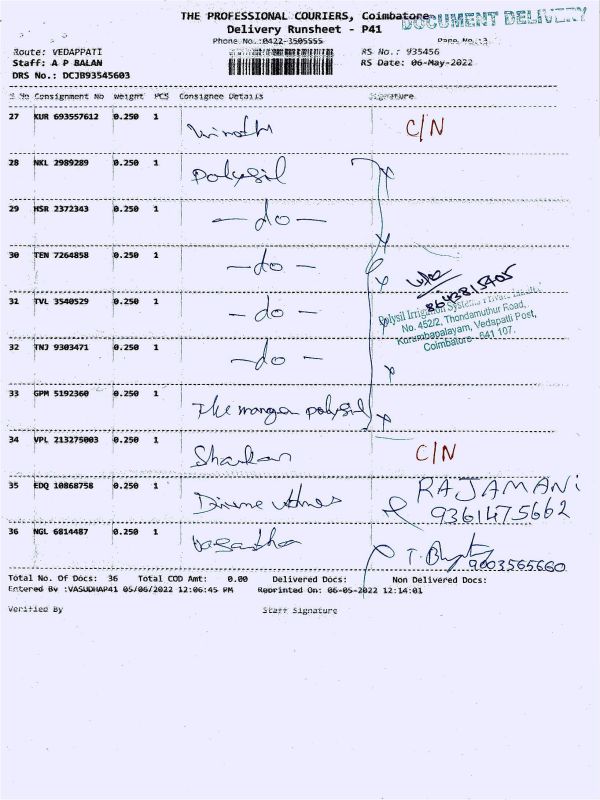 THE PROFESSIONAL COURIERS, Coimbatore
DOCUMENT DELIVERY
Delivery Runsheet - P41
Phone No.:0422-3505555
Page No.:3
Route: VEDAPPATI
RS No.: 935456
Staff: A P BALAN
RS Date: 06-May-2022
DRS No.: DCJB93545603
S No Consignment No Weight PCS Consignee Details Signature
27 KUR 693557612 0.250 1 C/N
28 NKL 2989289 0.250 1 Polysil
29 MSR 2372343 0.250 1 -do-
30 TEN 7264858 0.250 1 -do-
31 TVL 3540529 0.250 1 -do-
8643815905
Polysil Irrigation Systems Private Limited
No. 452/2, Thondamuthur Road,
Kurumbapalayam, Vedapatti Post,
Coimbatore - 641 107.
32 TNJ 9303471 0.250 1 -do-
33 GPM 5192360 0.250 1 The manger polysil
34 VPL 213275003 0.250 1 C/N
35 EDQ 10868758 0.250 1 RAJAMANi
9361475662
36 NGL 6814487 0.250 1 Vasantha
9003565660
Total No. Of Docs: 36 Total COD Amt: 0.00 Delivered Docs: Non Delivered Docs:
Entered By :VASUDHAP41 05/06/2022 12:06:45 PM Reprinted On: 06-05-2022 12:14:01
Verified By Staff Signature